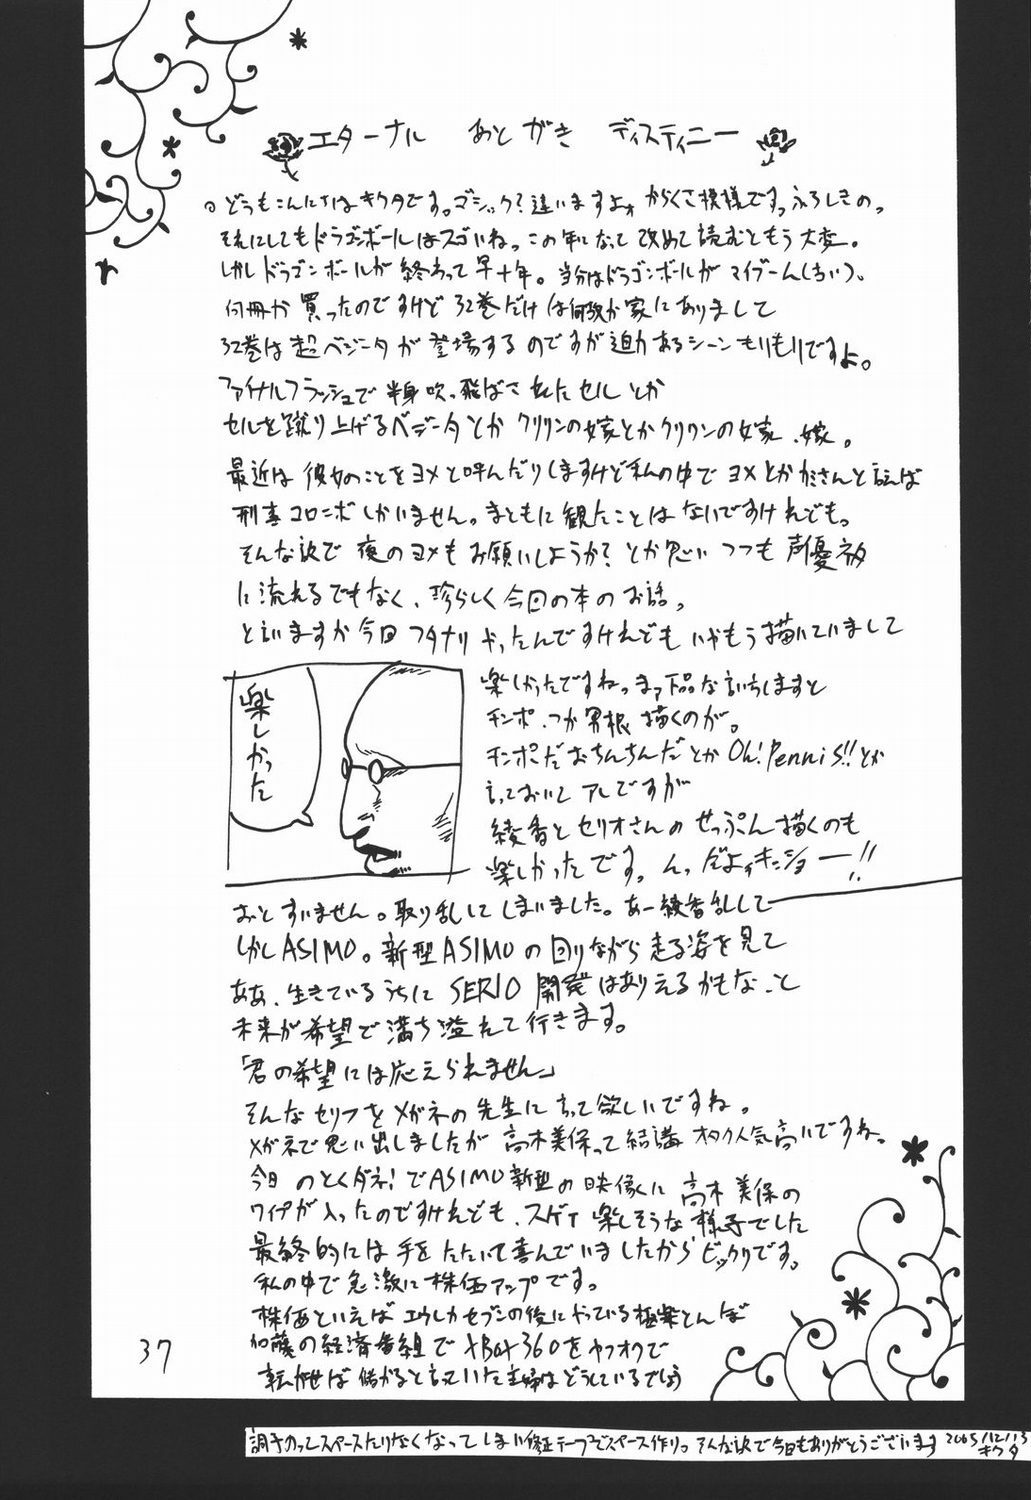 エターナル あとがき ディスティニー
どうもこんにちはキクタです。ゴシック?違いますよォ がらくさ模様ですっふろしきのっ
それにしてもドラゴンボールはスゴいね。この年になって改めて読むともう大変。
しかしドラゴンボールが終わって早十年。当分はドラゴンボールがマイブーム(古い)。
何冊か買ったのですけど32巻だけは何故か家にありまして
32巻は超ベジータが登場するのですが迫力あるシーンもりもりですよ。
ファイナルフラッシュで半身吹っ飛ばされたセルとか
セルを蹴り上げるベジータとかクリリンの嫁とかクリリンの嫁、嫁。
最近は彼女のことをヨメと呼んだりしますけど私の中でヨメとかカミさんと言えば
刑事コロンボしかいません。まともに観たことはないですけれどもっ
そんな訳で夜のヨメもお願いしようか?とか思いつつも声優ネタ
に流れるでもなく、珍らしく今回の本のお話。
と言いますか今回フタナリやったんですけれどもいやもう描いていまして
楽しかった
楽しかったですねっまァ下品な言い方しますと
チンポ、つか男根描くのが。
チンポだおちんちんだとかOh!Pennis!!とか
言っておいてアレですが
綾香とセリオさんのせっぷん描くのも
楽しかったです。んっだよォキンショー!!
おとすいません。取り乱してしまいました。あー綾香乱して
しかしASIMO。新型ASIMOの回りながら走る姿を見て
ああ、生きているうちにSERIO開発はありえるかもなっと
未来が希望で満ち溢れて行きます。
「君の希望には応えられません」
そんなセリフをメガネの先生に言って欲しいですね。
メガネで思い出しましたが高木美保って結構オタク人気高いですね。
今日のとくダネ!でASIMO新型の映像に高木美保の
ワイプが入ったのですけれども、スゲイ楽しそうな様子でした
最終的には手をたたいて喜んでいましたからビックリです。
私の中で急激に株価アップです。
株価といえばエウレカセブンの後にやっている極楽とんぼ
加藤の経済番組でXBOX360をヤフオクで
転売せば儲かると言っていた主婦はどうしているでしょう
37
調子のってスペースたりなくなってしまい修正テープでスペース作りっそんな訳で今日もありがとうございます 2005/12/13
キクタ